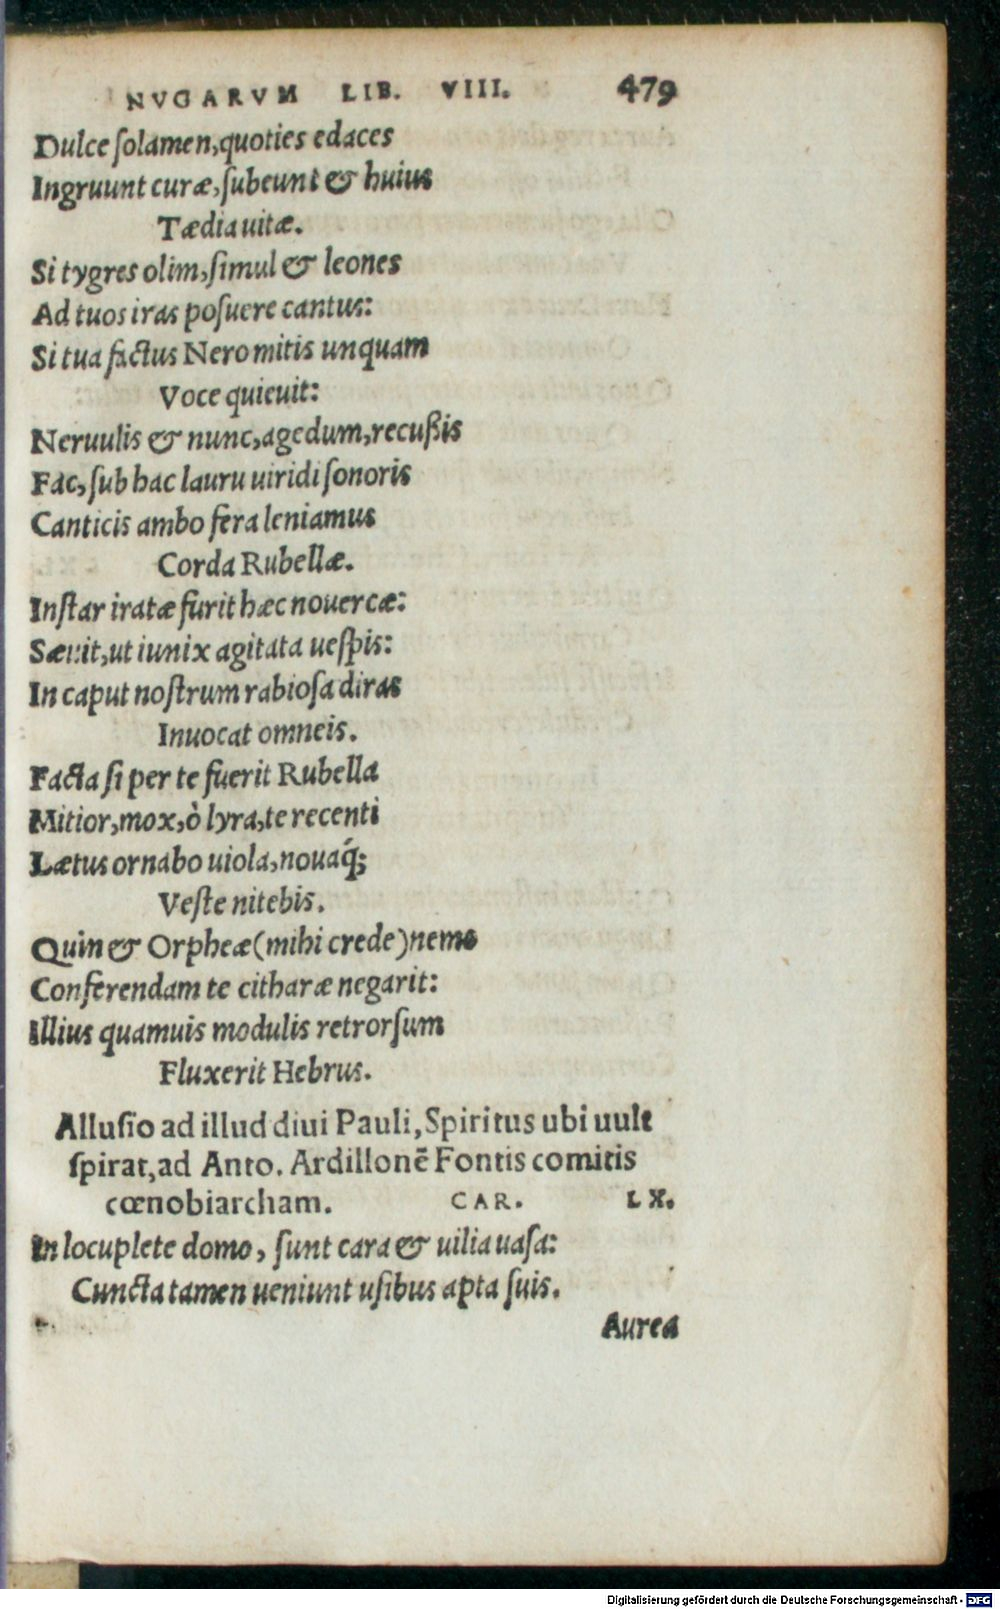 NVGARVM LIB. VIII. 479
Dulce ſolamen, quoties edaces
Ingruunt curæ, ſubeunt & huius
Tædia uitæ.
Si tygres olim, ſimul & leones
Ad tuos iras poſuere cantus:
Si tua factus Nero mitis unquam
Voce quieuit:
Neruulis & nunc, agedum, recußis
Fac, ſub hac lauru uiridi ſonoris
Canticis ambo fera leniamus
Corda Rubellæ.
Inſtar iratæ furit hæc nouercæ:
Sæuit, ut iunix agitata ueſpis:
In caput noſtrum rabioſa diras
Inuocat omneis.
Facta ſi per te fuerit Rubella
Mitior, mox, ò lyra, te recenti
Lætus ornabo uiola, nouaq́;
Veſte nitebis.
Quin & Orpheæ (mihi crede) nemo
Conferendam te citharæ negarit:
Illius quamuis modulis retrorſum
Fluxerit Hebrus.
Alluſio ad illud diui Pauli, Spiritus ubi uult
ſpirat, ad Anto. Ardillonē Fontis comitis
cœnobiarcham. CAR. LX.
In locuplete domo, ſunt cara & uilia uaſa:
Cuncta tamen ueniunt uſibus apta ſuis.
Aurea
Digitalisierung gefördert durch die Deutsche Forschungsgemeinschaft - DFG